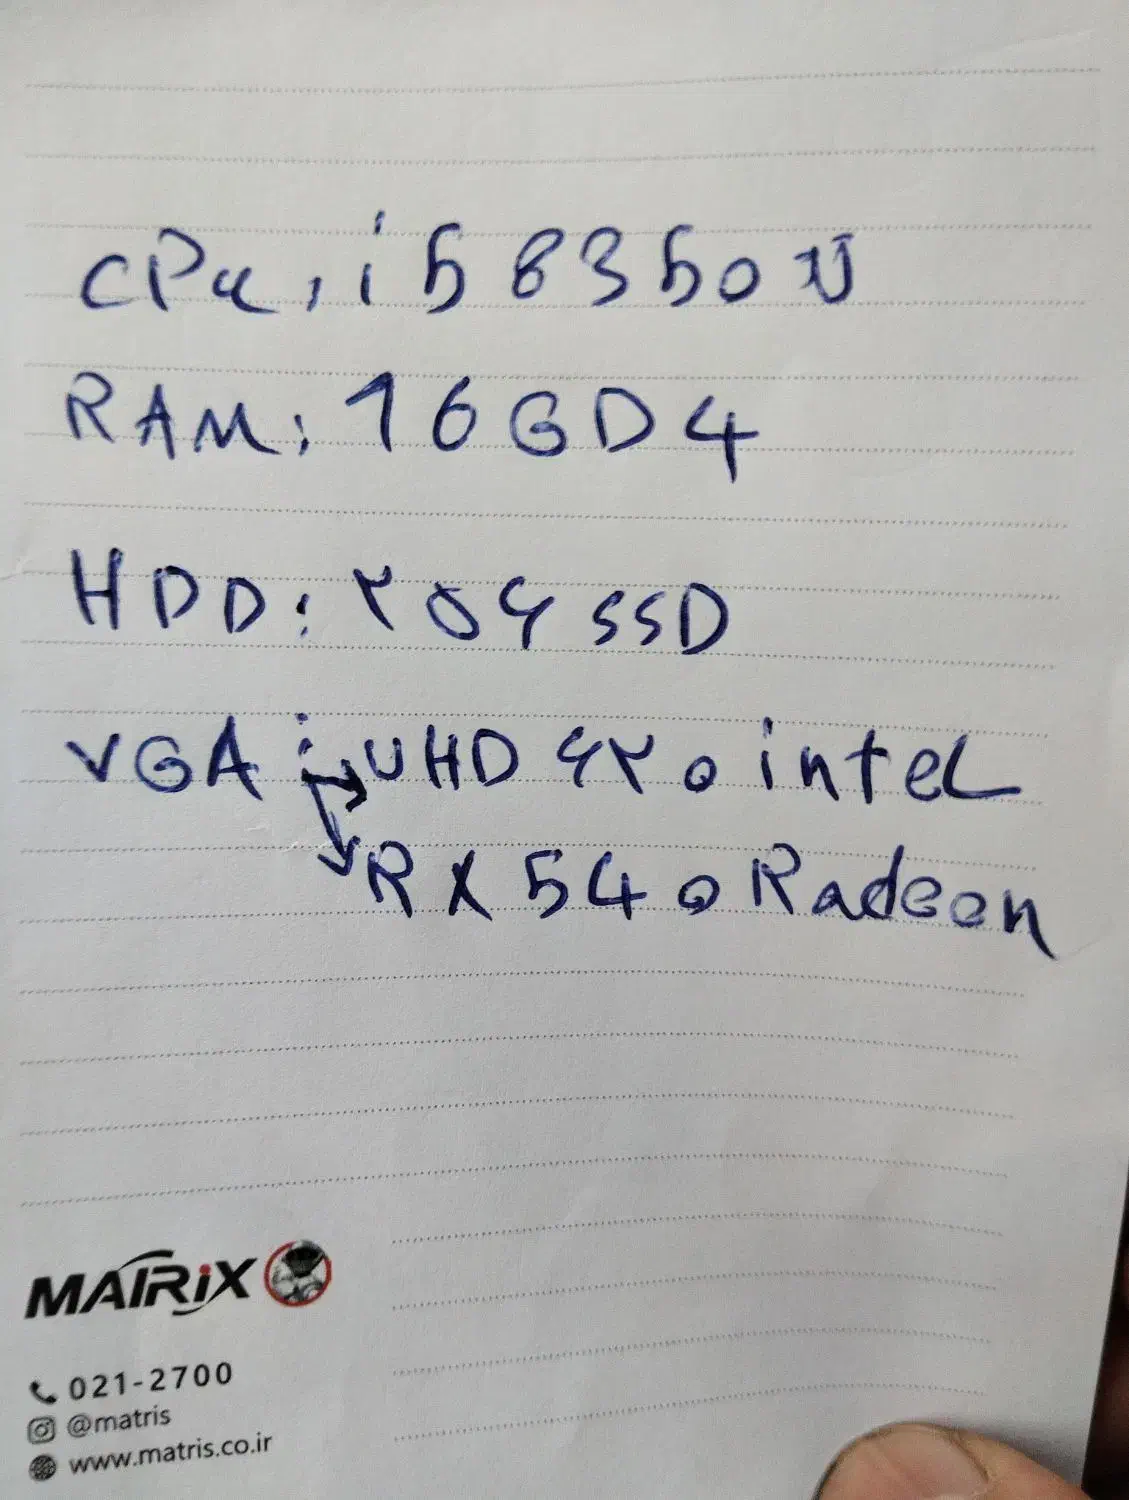 CPu: i5 8350U
RAM: 16GD4
HDD: ۲۵۶ SSD
VGA: UHD ۶۲۰ intel
RX 540 Radeon
MATRiX
021-2700
@matris
www.matris.co.ir